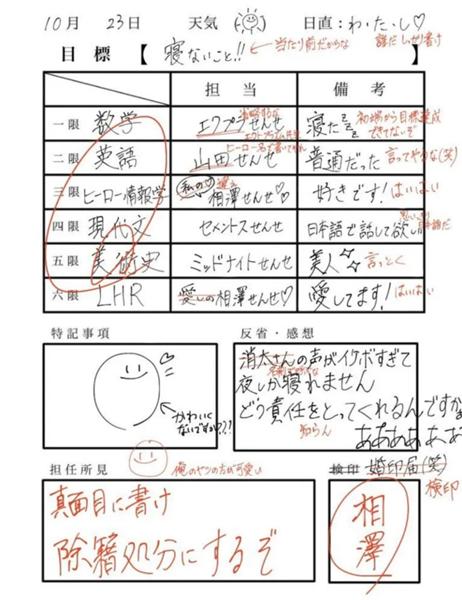 10月 23日 天気 日直:わ・た・し♡
目標【寝ないこと!!】←当たり前だからな 誰だ しっかり書け
担当 備考
一限 数学 エクプラせんせ 省略するな エクトプラズム先生 寝た 初端から目標達成できてないぞ
二限 英語 山田せんせ ヒーロー名で書いてやれ 普通だった 言ってやるな(笑)
三限 ヒーロー情報学 私の♡ 相澤せんせ♡ 好きです! はいはい
四限 現代文 セメントスせんせ 日本語で話して欲しい 思いっきり日本語だ
五限 美術史 ミッドナイトせんせ 美人 言っとく
六限 LHR 愛しの相澤せんせ♡ 愛してます! はいはい
特記事項
かわいくないですか??!
反省・感想
消太さんの声がイケボすぎて
夜しか寝れません
どう責任をとってくれるんですか
知らん
ああああああ
担任所見
俺のヤツの方が可愛い
真面目に書け
除籍処分にするぞ
検印 婚印届(笑)
検印
相澤